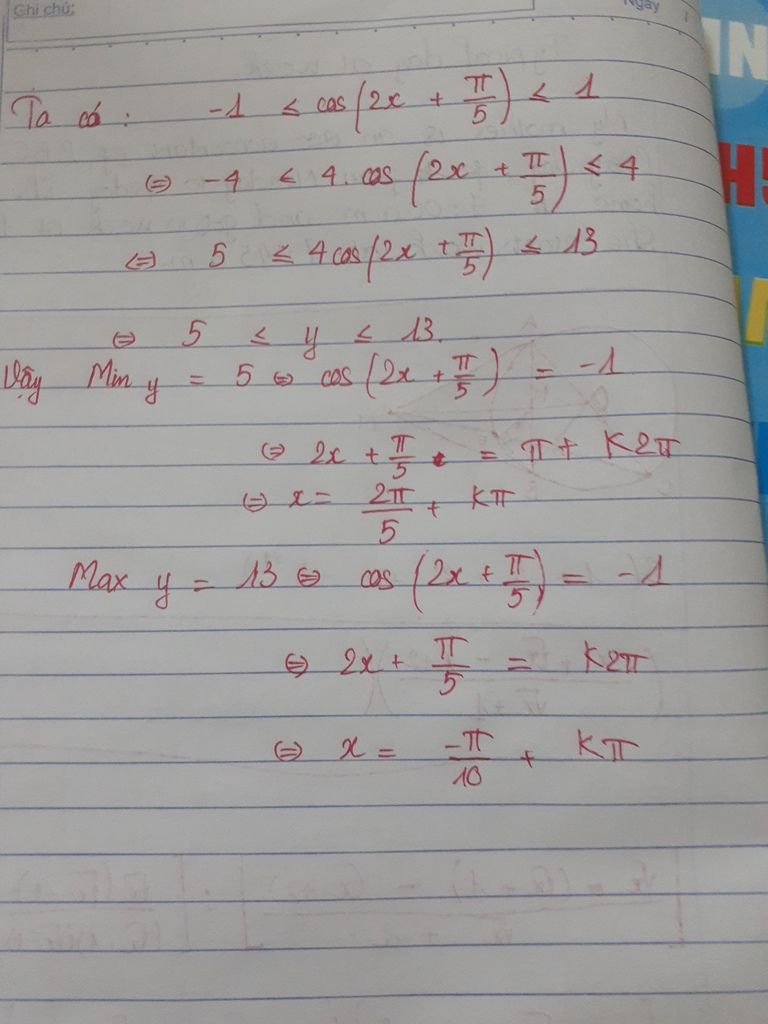 Ghi chú:
Ngày
Ta có : -1 ≤ cos(2x + π/5) ≤ 1
⇔ -4 ≤ 4.cos(2x + π/5) ≤ 4
⇔ 5 ≤ 4cos(2x + π/5) ≤ 13
⇔ 5 ≤ y ≤ 13.
Vậy Min y = 5 ⇔ cos(2x + π/5) = -1
⇔ 2x + π/5 = π + K2π
⇔ x = 2π/5 + Kπ
Max y = 13 ⇔ cos(2x + π/5) = -1
⇔ 2x + π/5 = K2π
⇔ x = -π/10 + Kπ